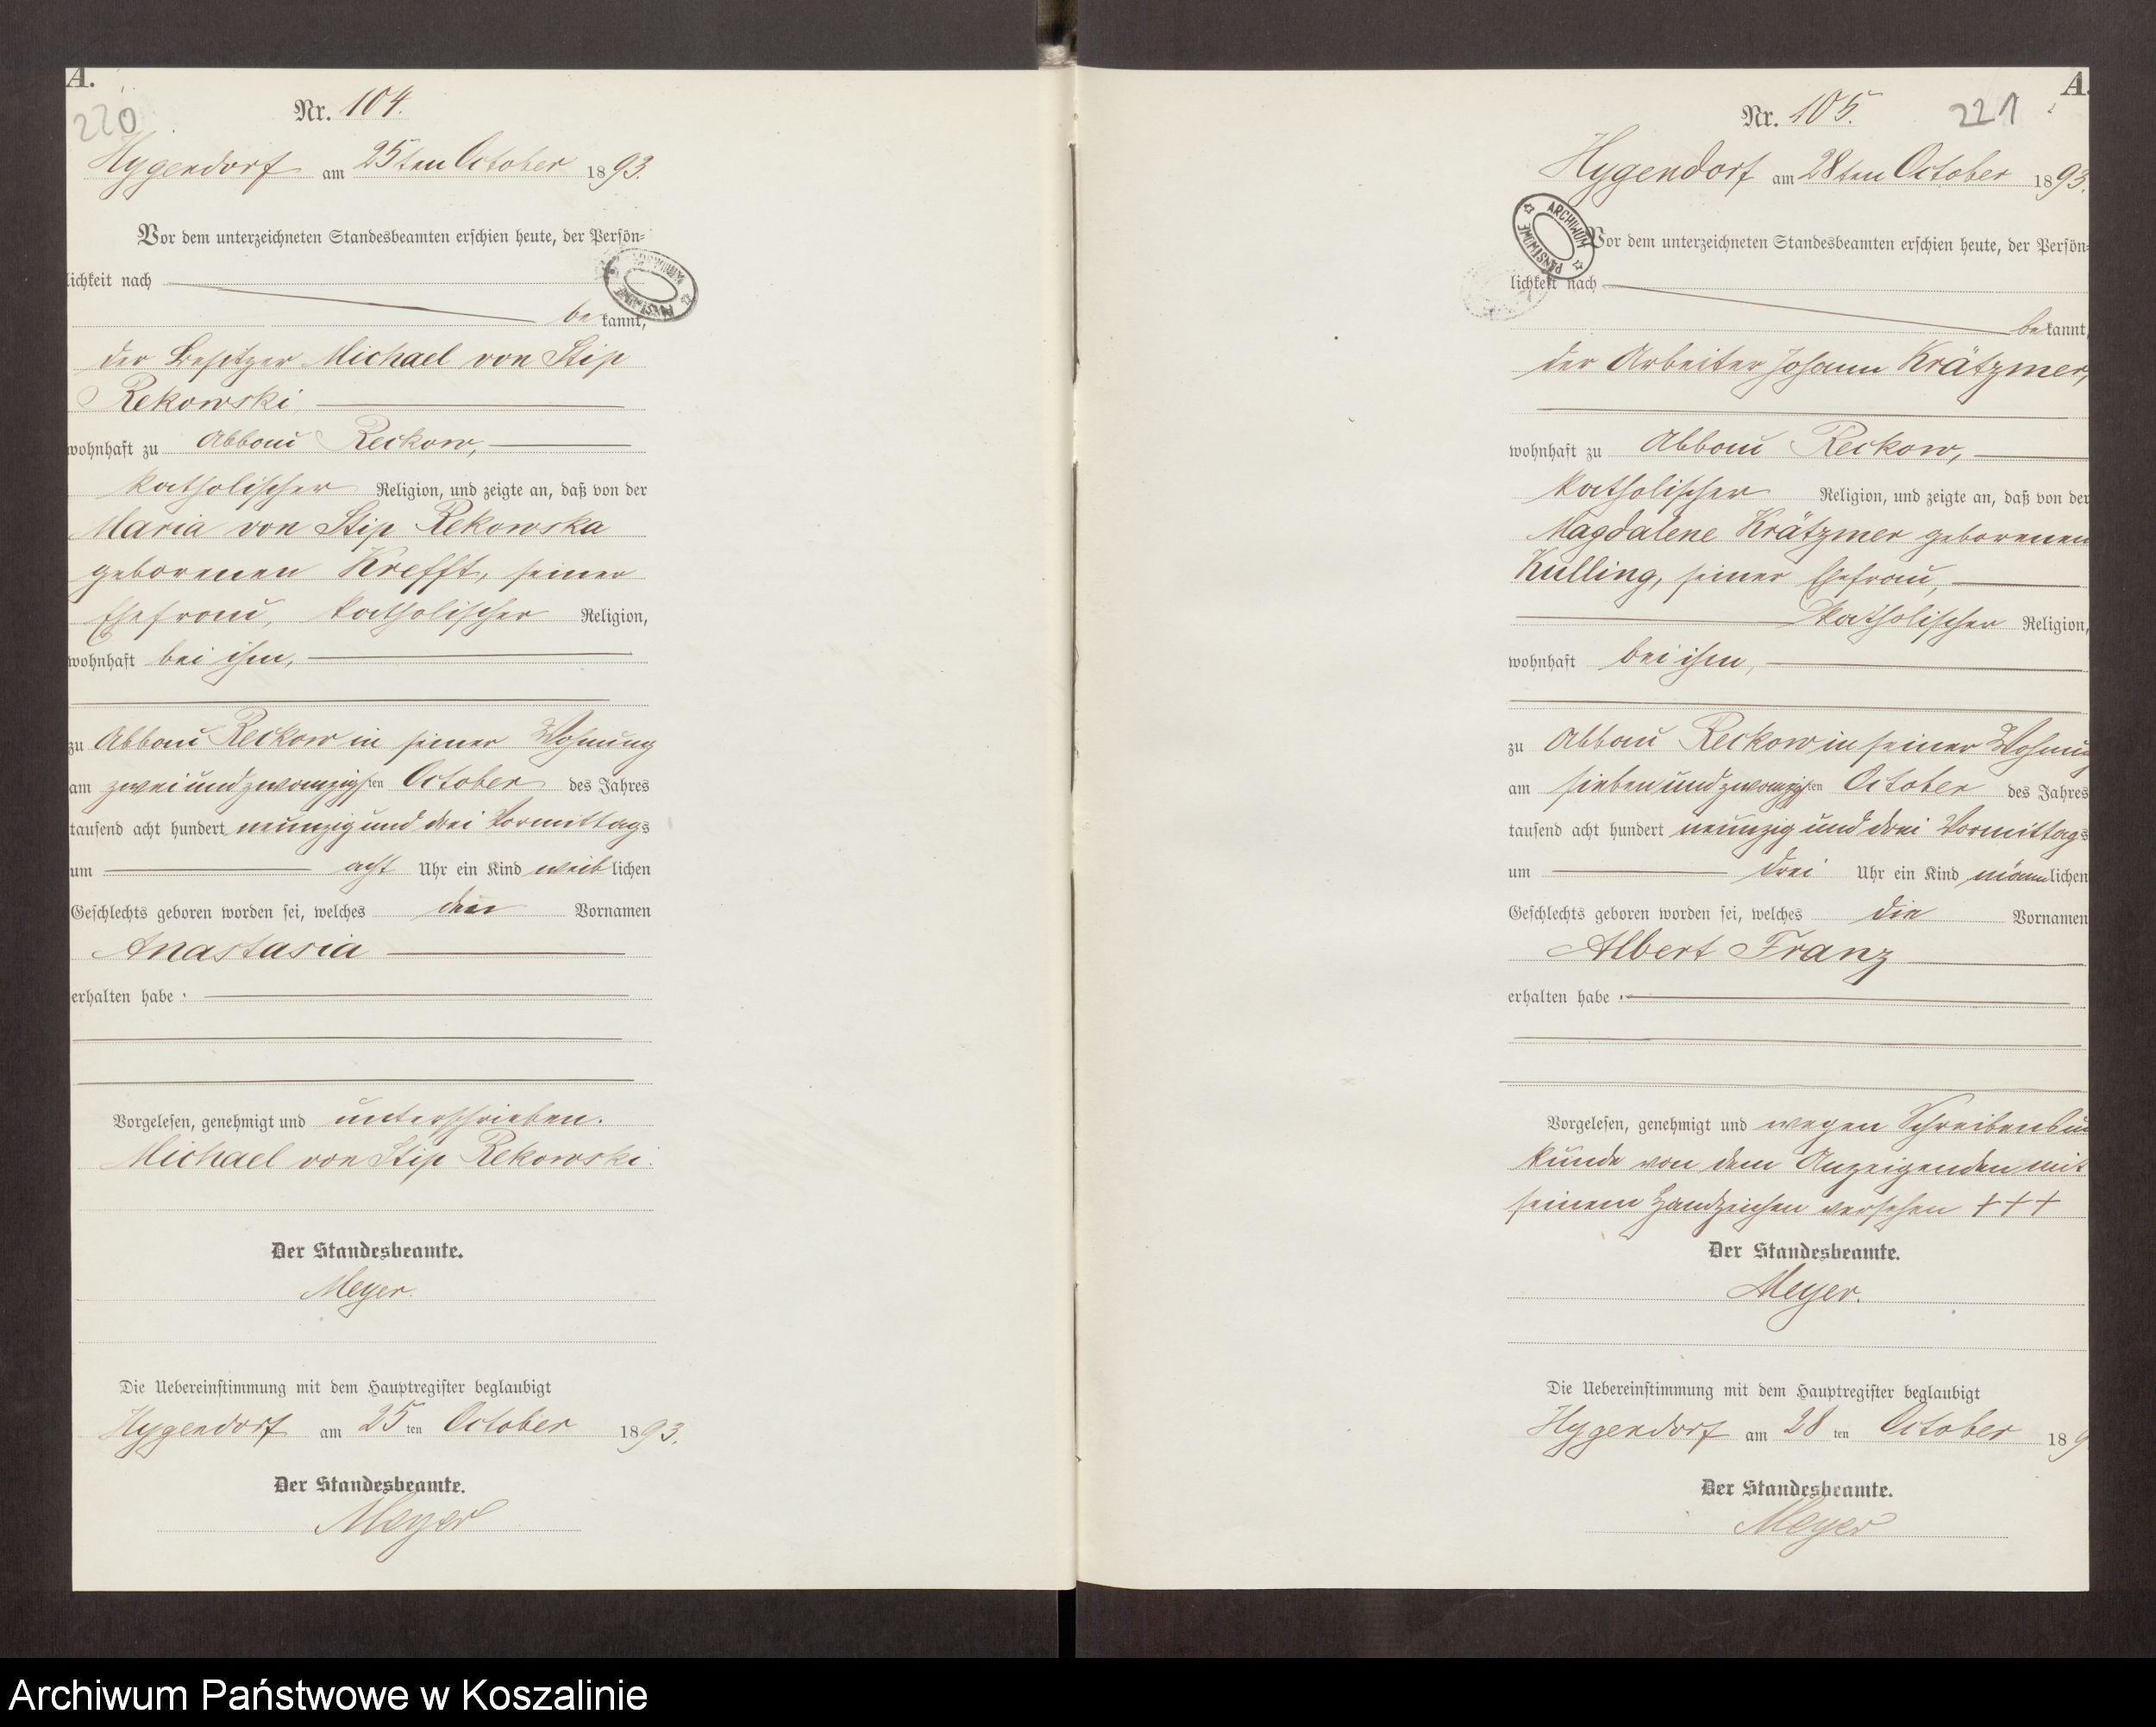 A.
220
Nr. 104.
Hygendorf am 25ten October 1893.
Vor dem unterzeichneten Standesbeamten erschien heute, der Persön-
lichkeit nach
bekannt,
der Besitzer Michael von Stip
Rekowski
wohnhaft zu Abbau Reckow,
katholischer Religion, und zeigte an, daß von der
Maria von Stip Rekowska
geborenen Krefft, seiner
Ehefrau, katholischer Religion,
wohnhaft bei ihm,
zu Abbau Reckow in seiner Wohnung
am zweiundzwanzigsten October des Jahres
tausend acht hundert neunzig und drei Vormittags
um acht Uhr ein Kind weiblichen
Geschlechts geboren worden sei, welches den Vornamen
Anastasia
erhalten habe.
Vorgelesen, genehmigt und unterschrieben.
Michael von Stip Rekowski.
Der Standesbeamte.
Meyer.
Die Uebereinstimmung mit dem Hauptregister beglaubigt
Hygendorf am 25ten October 1893.
Der Standesbeamte.
Meyer
A.
221
Nr. 105.
Hygendorf am 28ten October 1893.
ARCHIWUM PAŃSTWOWE
Vor dem unterzeichneten Standesbeamten erschien heute, der Persön-
lichkeit nach
bekannt,
der Arbeiter Johann Krätzmer,
wohnhaft zu Abbau Reckow,
katholischer Religion, und zeigte an, daß von der
Magdalene Krätzmer geborenen
Kulling, seiner Ehefrau,
katholischer Religion,
wohnhaft bei ihm,
zu Abbau Reckow in seiner Wohnung
am siebenundzwanzigsten October des Jahres
tausend acht hundert neunzig und drei Vormittags
um drei Uhr ein Kind männlichen
Geschlechts geboren worden sei, welches die Vornamen
Albert Franz
erhalten habe.
Vorgelesen, genehmigt und wegen Schreibensun
kunde von dem Anzeigenden mit
seinem Handzeichen versehen +++
Der Standesbeamte.
Meyer.
Die Uebereinstimmung mit dem Hauptregister beglaubigt
Hygendorf am 28ten October 189
Der Standesbeamte.
Meyer
Archiwum Państwowe w Koszalinie